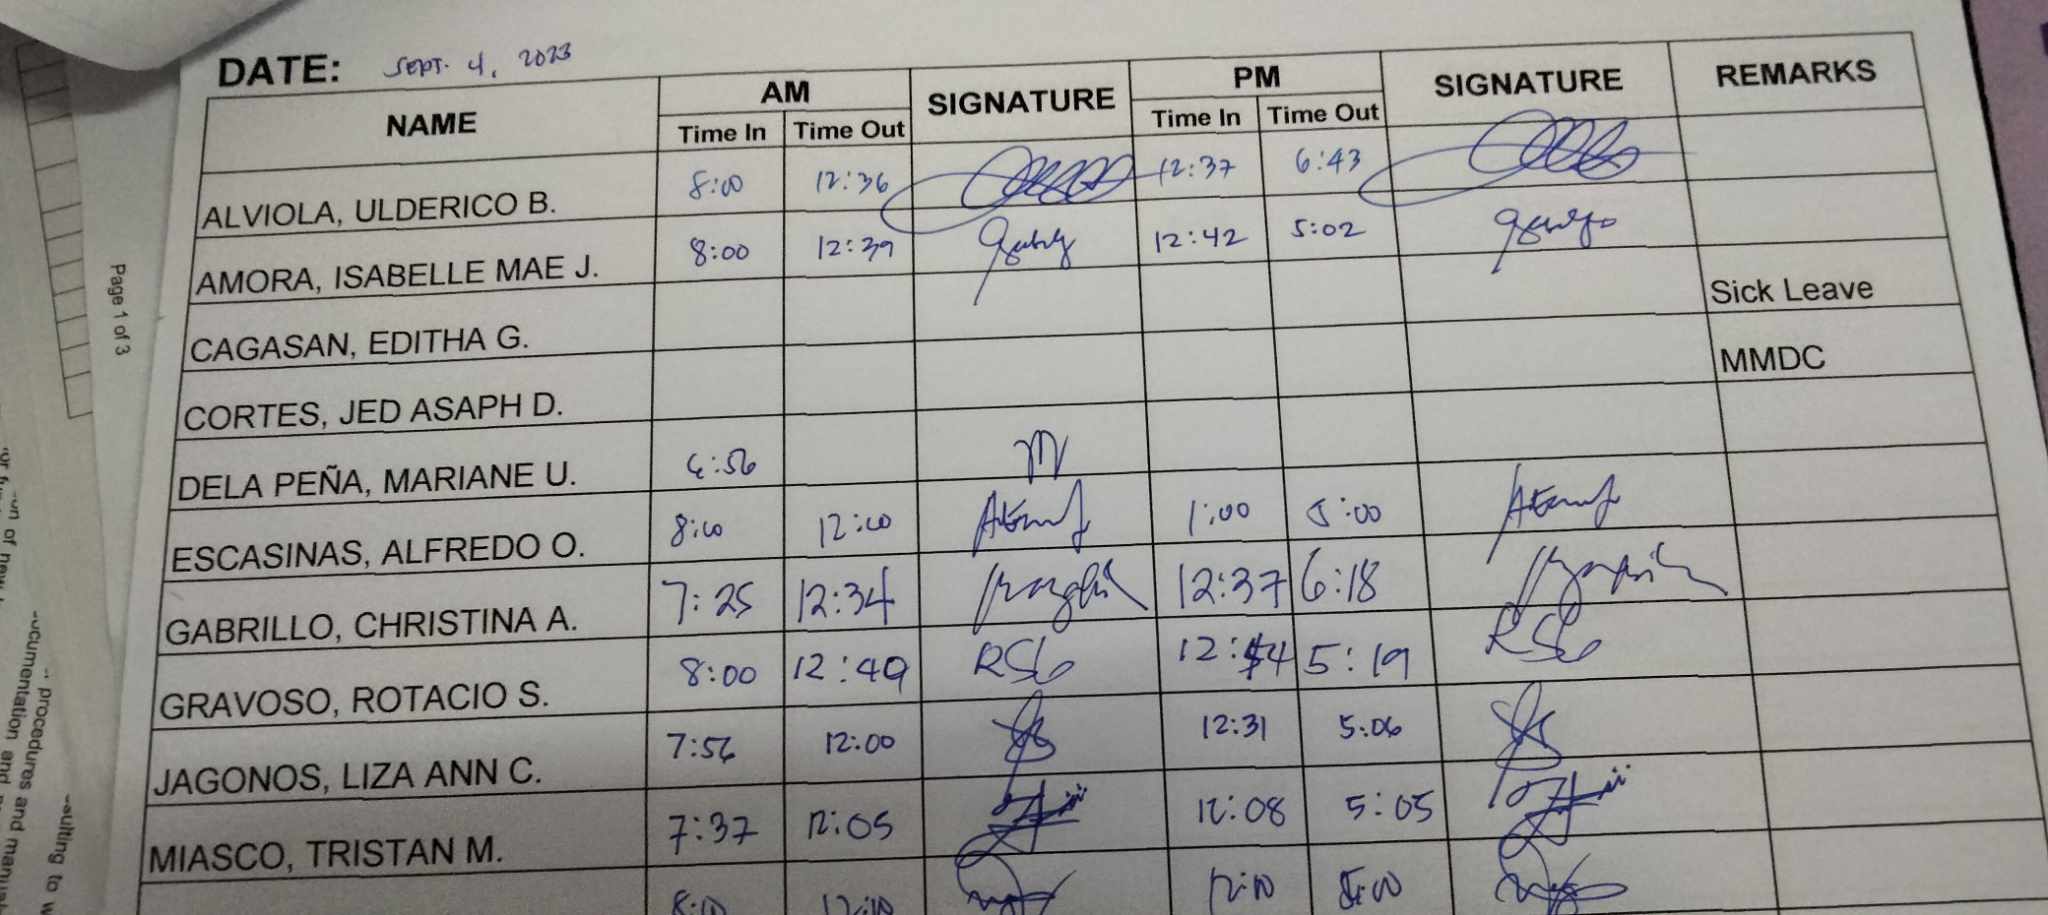 DATE: SEPT. 4, 2023
NAME AM SIGNATURE PM SIGNATURE REMARKS
Time In Time Out Time In Time Out
ALVIOLA, ULDERICO B. 8:00 12:36 12:37 6:43
AMORA, ISABELLE MAE J. 8:00 12:39 12:42 5:02
CAGASAN, EDITHA G. Sick Leave
CORTES, JED ASAPH D. MMDC
DELA PEÑA, MARIANE U. M
ESCASINAS, ALFREDO O. 8:00 12:00 1:00 5:00
GABRILLO, CHRISTINA A. 7:25 12:34 12:37 6:18
GRAVOSO, ROTACIO S. 8:00 12:49 RSG 5:19 RSG
JAGONOS, LIZA ANN C. 7:56 12:00 12:31 5:06
MIASCO, TRISTAN M. 7:37 12:05 12:08 5:05
8:00 12:10 12:10
Page 1 of 3
procedures and